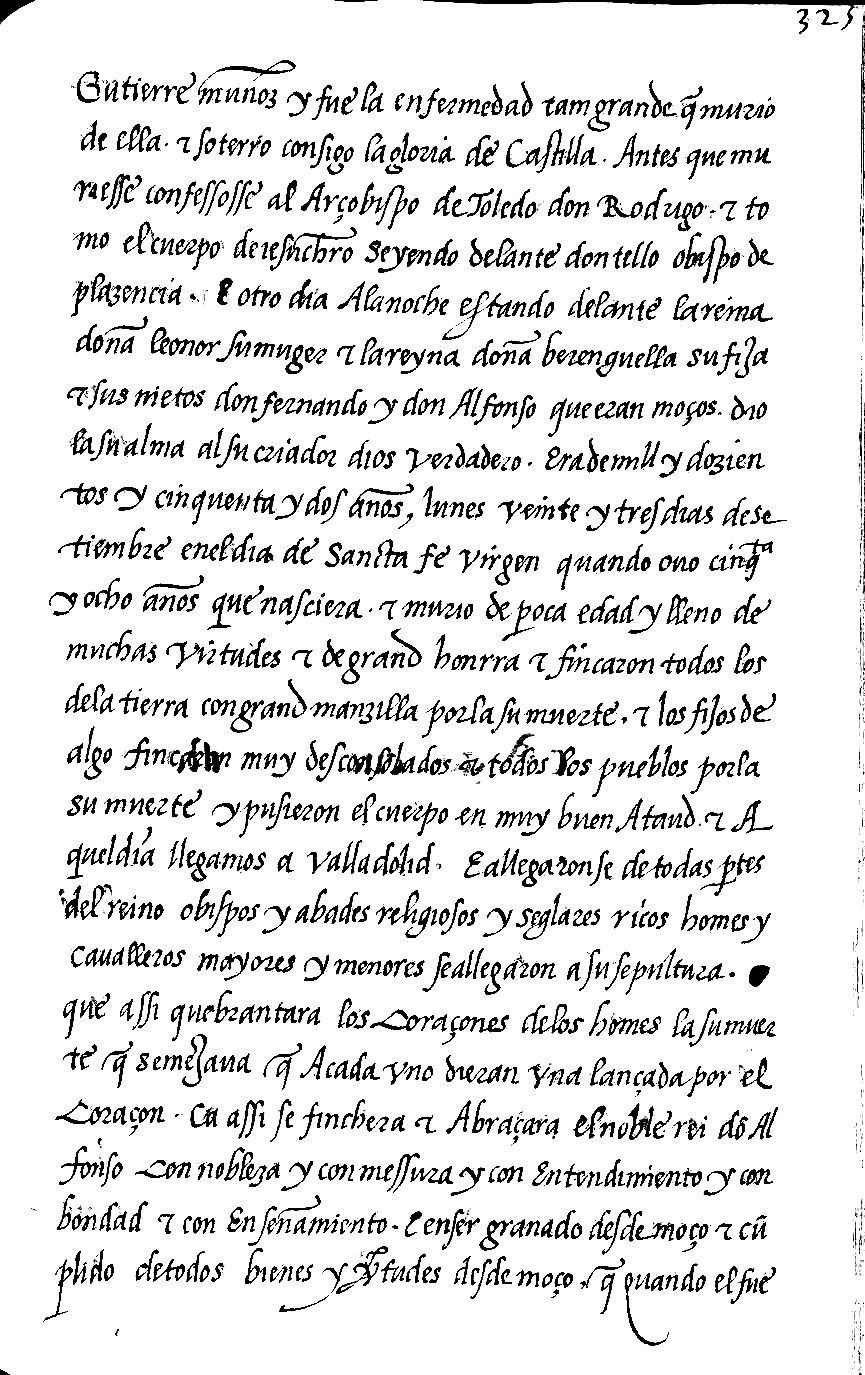 325
Gutierre muñoz y fue la enfermedad tam grande q̃ murio
de ella · τ soterro consigo la gloria de Castilla · Antes que mu
riesse confessosse al Arçobispo de Toledo don Rodrigo · τ to
mo el cuerpo de iesuchr̃o seyendo delante don tello obispo de
plazencia · E otro dia A la noche estando delante la reina
doña leonor su muger τ la reyna doña berenguella su fija
τ sus nietos don fernando y don Alfonso que eran moços · dio
la su alma al su criador dios verdadero · Era de mill y dozien
tos y cinquenta y dos años, lunes veinte y tres dias de se
tiembre en el dia de Sancta fe virgen quando ouo cinq̃ᵗᵃ
y ocho años que nasciera · τ murio de poca edad y lleno de
muchas virtudes τ de grand honrra τ fincaron todos los
de la tierra con grand manzilla por la su muerte · τ los fijos de
algo fincaron muy desconsolados τ todos los pueblos por la
su muerte y pusieron el cuerpo en muy buen Ataud · τ A
quel dia llegamos a valladolid · E allegaron se de todas p̃tes
del reino obispos y abades religiosos y seglares ricos homes y
caualleros mayores y menores se allegaron a su sepultura ·
que assi quebrantara los Coraçones de los homes la su muer
te q̃ semejaua q̃ A cada vno dieran vna lançada por el
Coraçon · Ca assi se finchera τ Abraçara el noble rei dõ Al
fonso Con nobleza y con messura y con Entendimiento y con
bondad τ con Enseñamiento · E en ser granado desde moço τ cũ
plido de todos bienes y ṽtudes desde moço · q̃ quando el fue